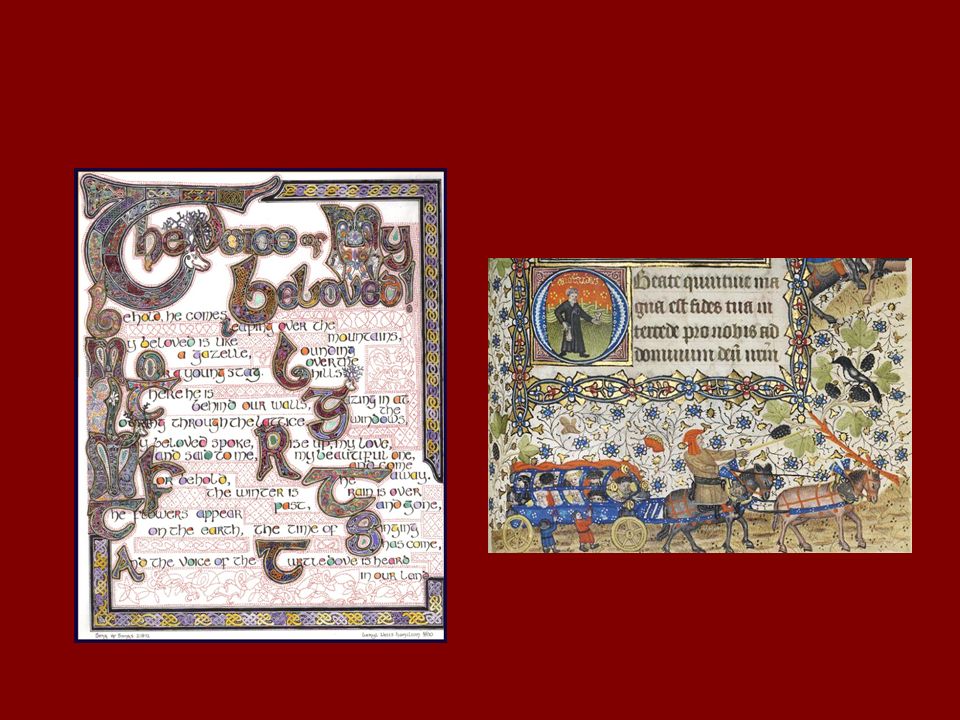 The Voice of My
beloved!
Behold, he comes
leaping over the
mountains,
My beloved is like
a gazelle,
bounding
over the
hills
Or a young stag.
There he is
behind our walls,
gazing in at
the
windows,
looking through the lattice.
My beloved spoke,
and said to me,
Rise up, my love,
my beautiful one,
and come
away.
For behold,
the winter is
past,
The
rain is over
and gone,
The flowers appear
on the earth,
the time of
singing
has come,
And the voice of the turtledove is heard
in our land
Song of Songs 2:8-12
O Beate quintine ma
gna est fides tua in
tercede pro nobis ad
dominum